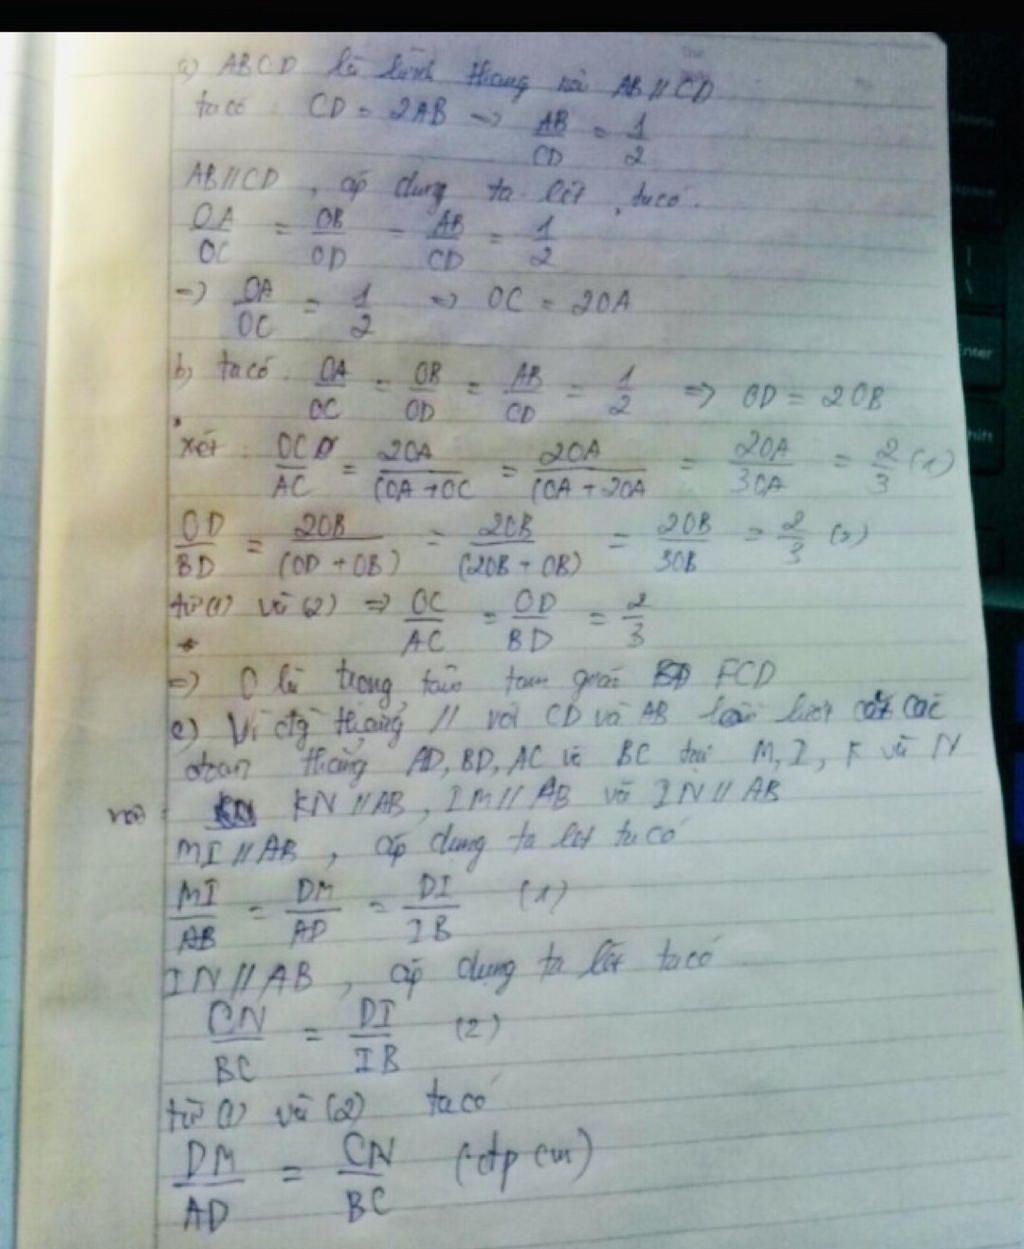 a) ABCD là hình thang nên AB // CD
ta có : CD = 2AB => AB/CD = 1/2
AB // CD , áp dụng ta lét , ta có .
OA/OC = OB/OD = AB/CD = 1/2
=> OA/OC = 1/2 => OC = 2OA
b) ta có : OA/OC = OB/OD = AB/CD = 1/2 => OD = 2OB
xét : OC/AC = 2OA/(OA + OC = 2OA/(OA + 2OA = 2OA/3OA = 2/3 (1)
OD/BD = 2OB/(OD + OB) = 2OB/(2OB + OB) = 2OB/3OB = 2/3 (2)
từ (1) và (2) => OC/AC = OD/BD = 2/3
=> O là trọng tâm tam giác FCD
c) Vì đg thẳng // với CD và AB lần lượt cắt các
đoạn thẳng AD, BD, AC và BC tại M, I, K và N
nên : KN // AB , IM // AB và IN // AB
MI // AB , áp dụng ta lét ta có
MI/AB = DM/AD = DI/IB (1)
IN // AB , áp dụng ta lét ta có
CN/BC = DI/IB (2)
từ (1) và (2) ta có
DM/AD = CN/BC (đp cm)